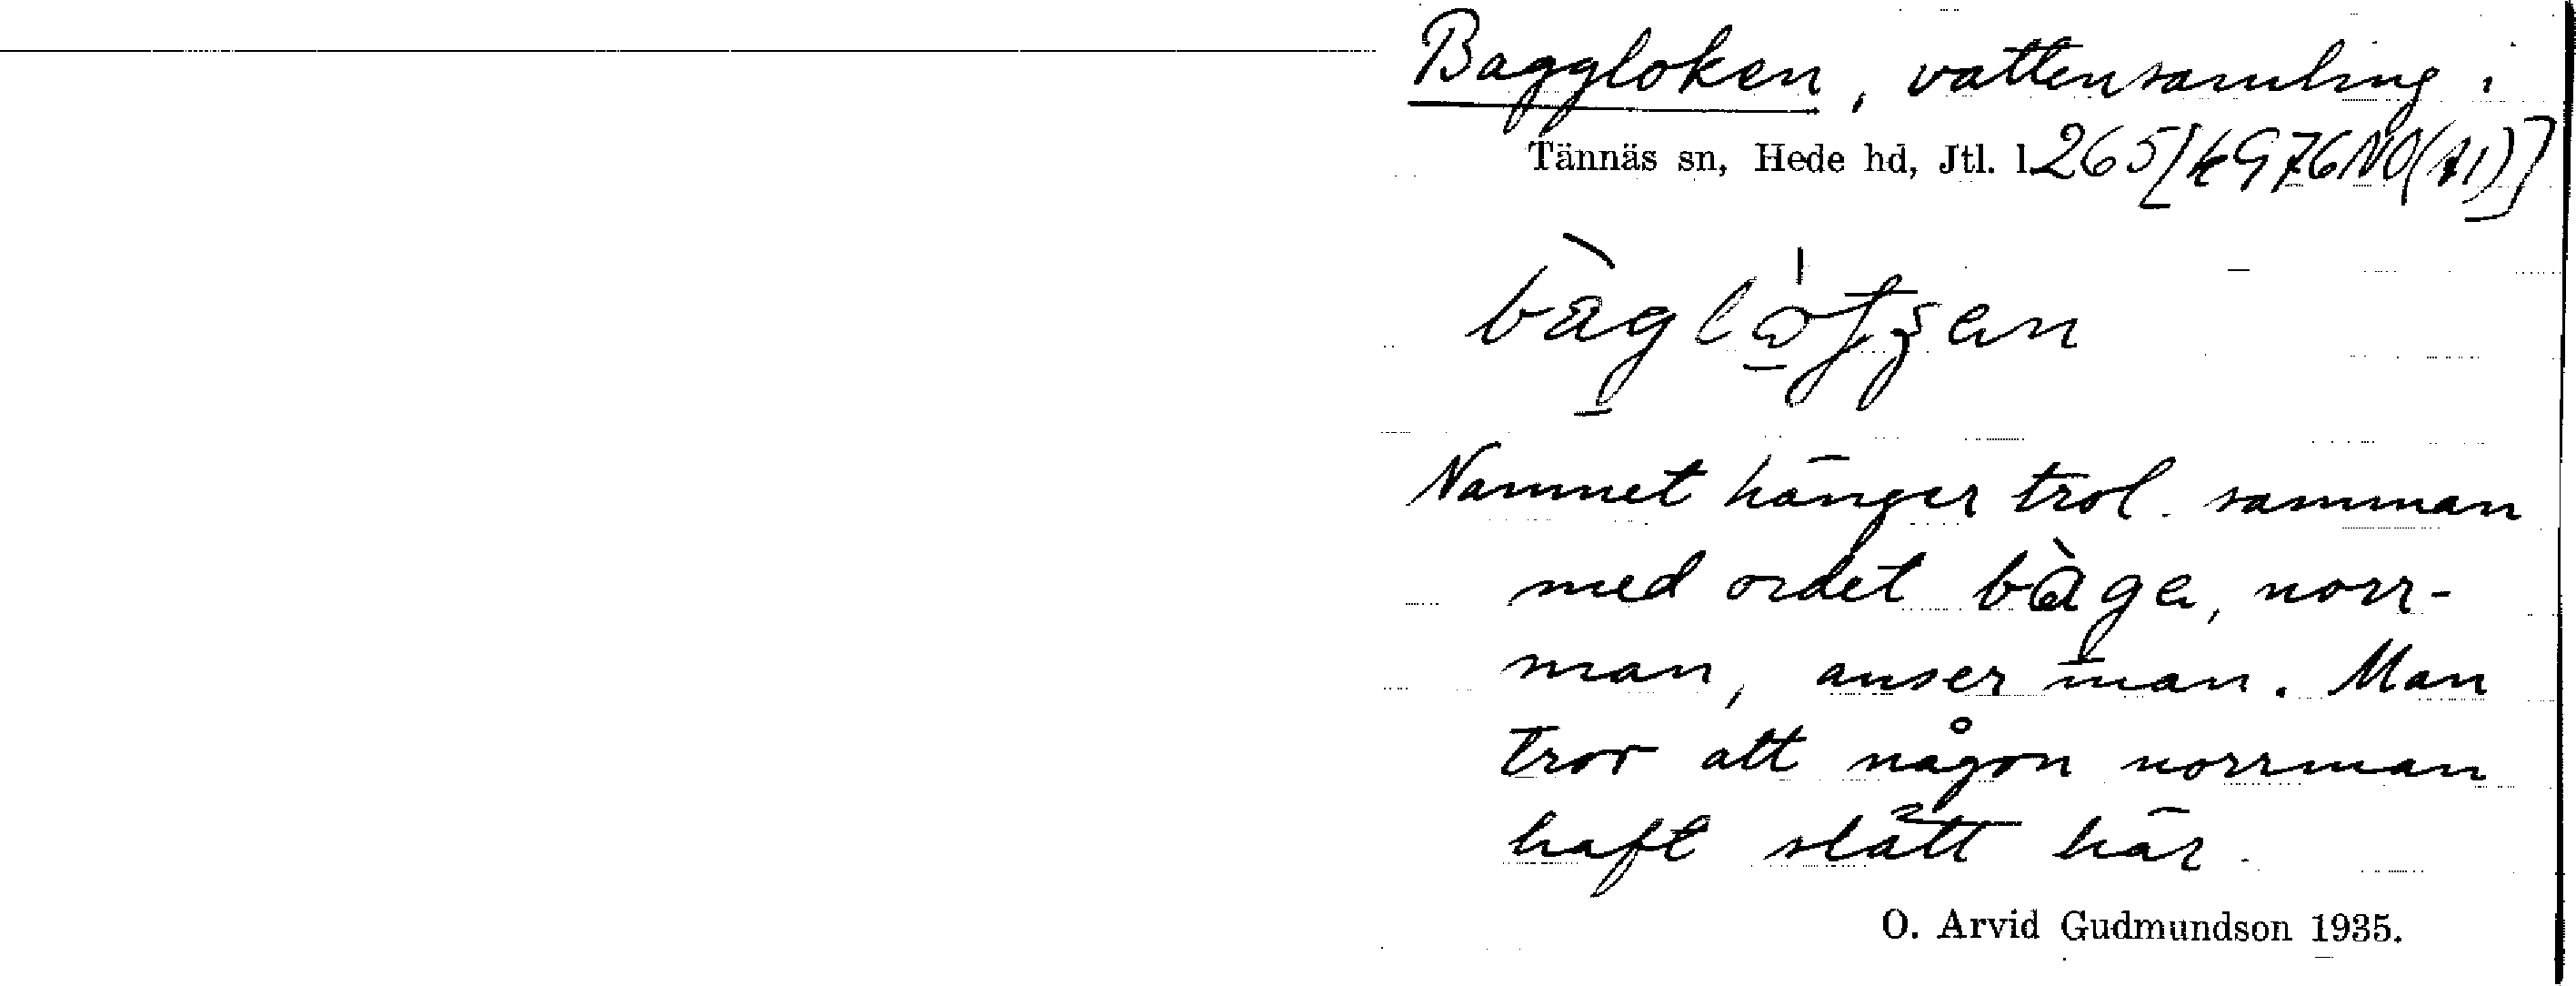 Baggloken, vattensamling i
Tännäs sn, Hede hd, Jtl. l. 265 [k976NO(A1)]
Namnet hänger trol. samman
med ordet bàge, norr-
man, anser man. Man
tror att någon norrman
haft slått här.
O. Arvid Gudmundson 1935.